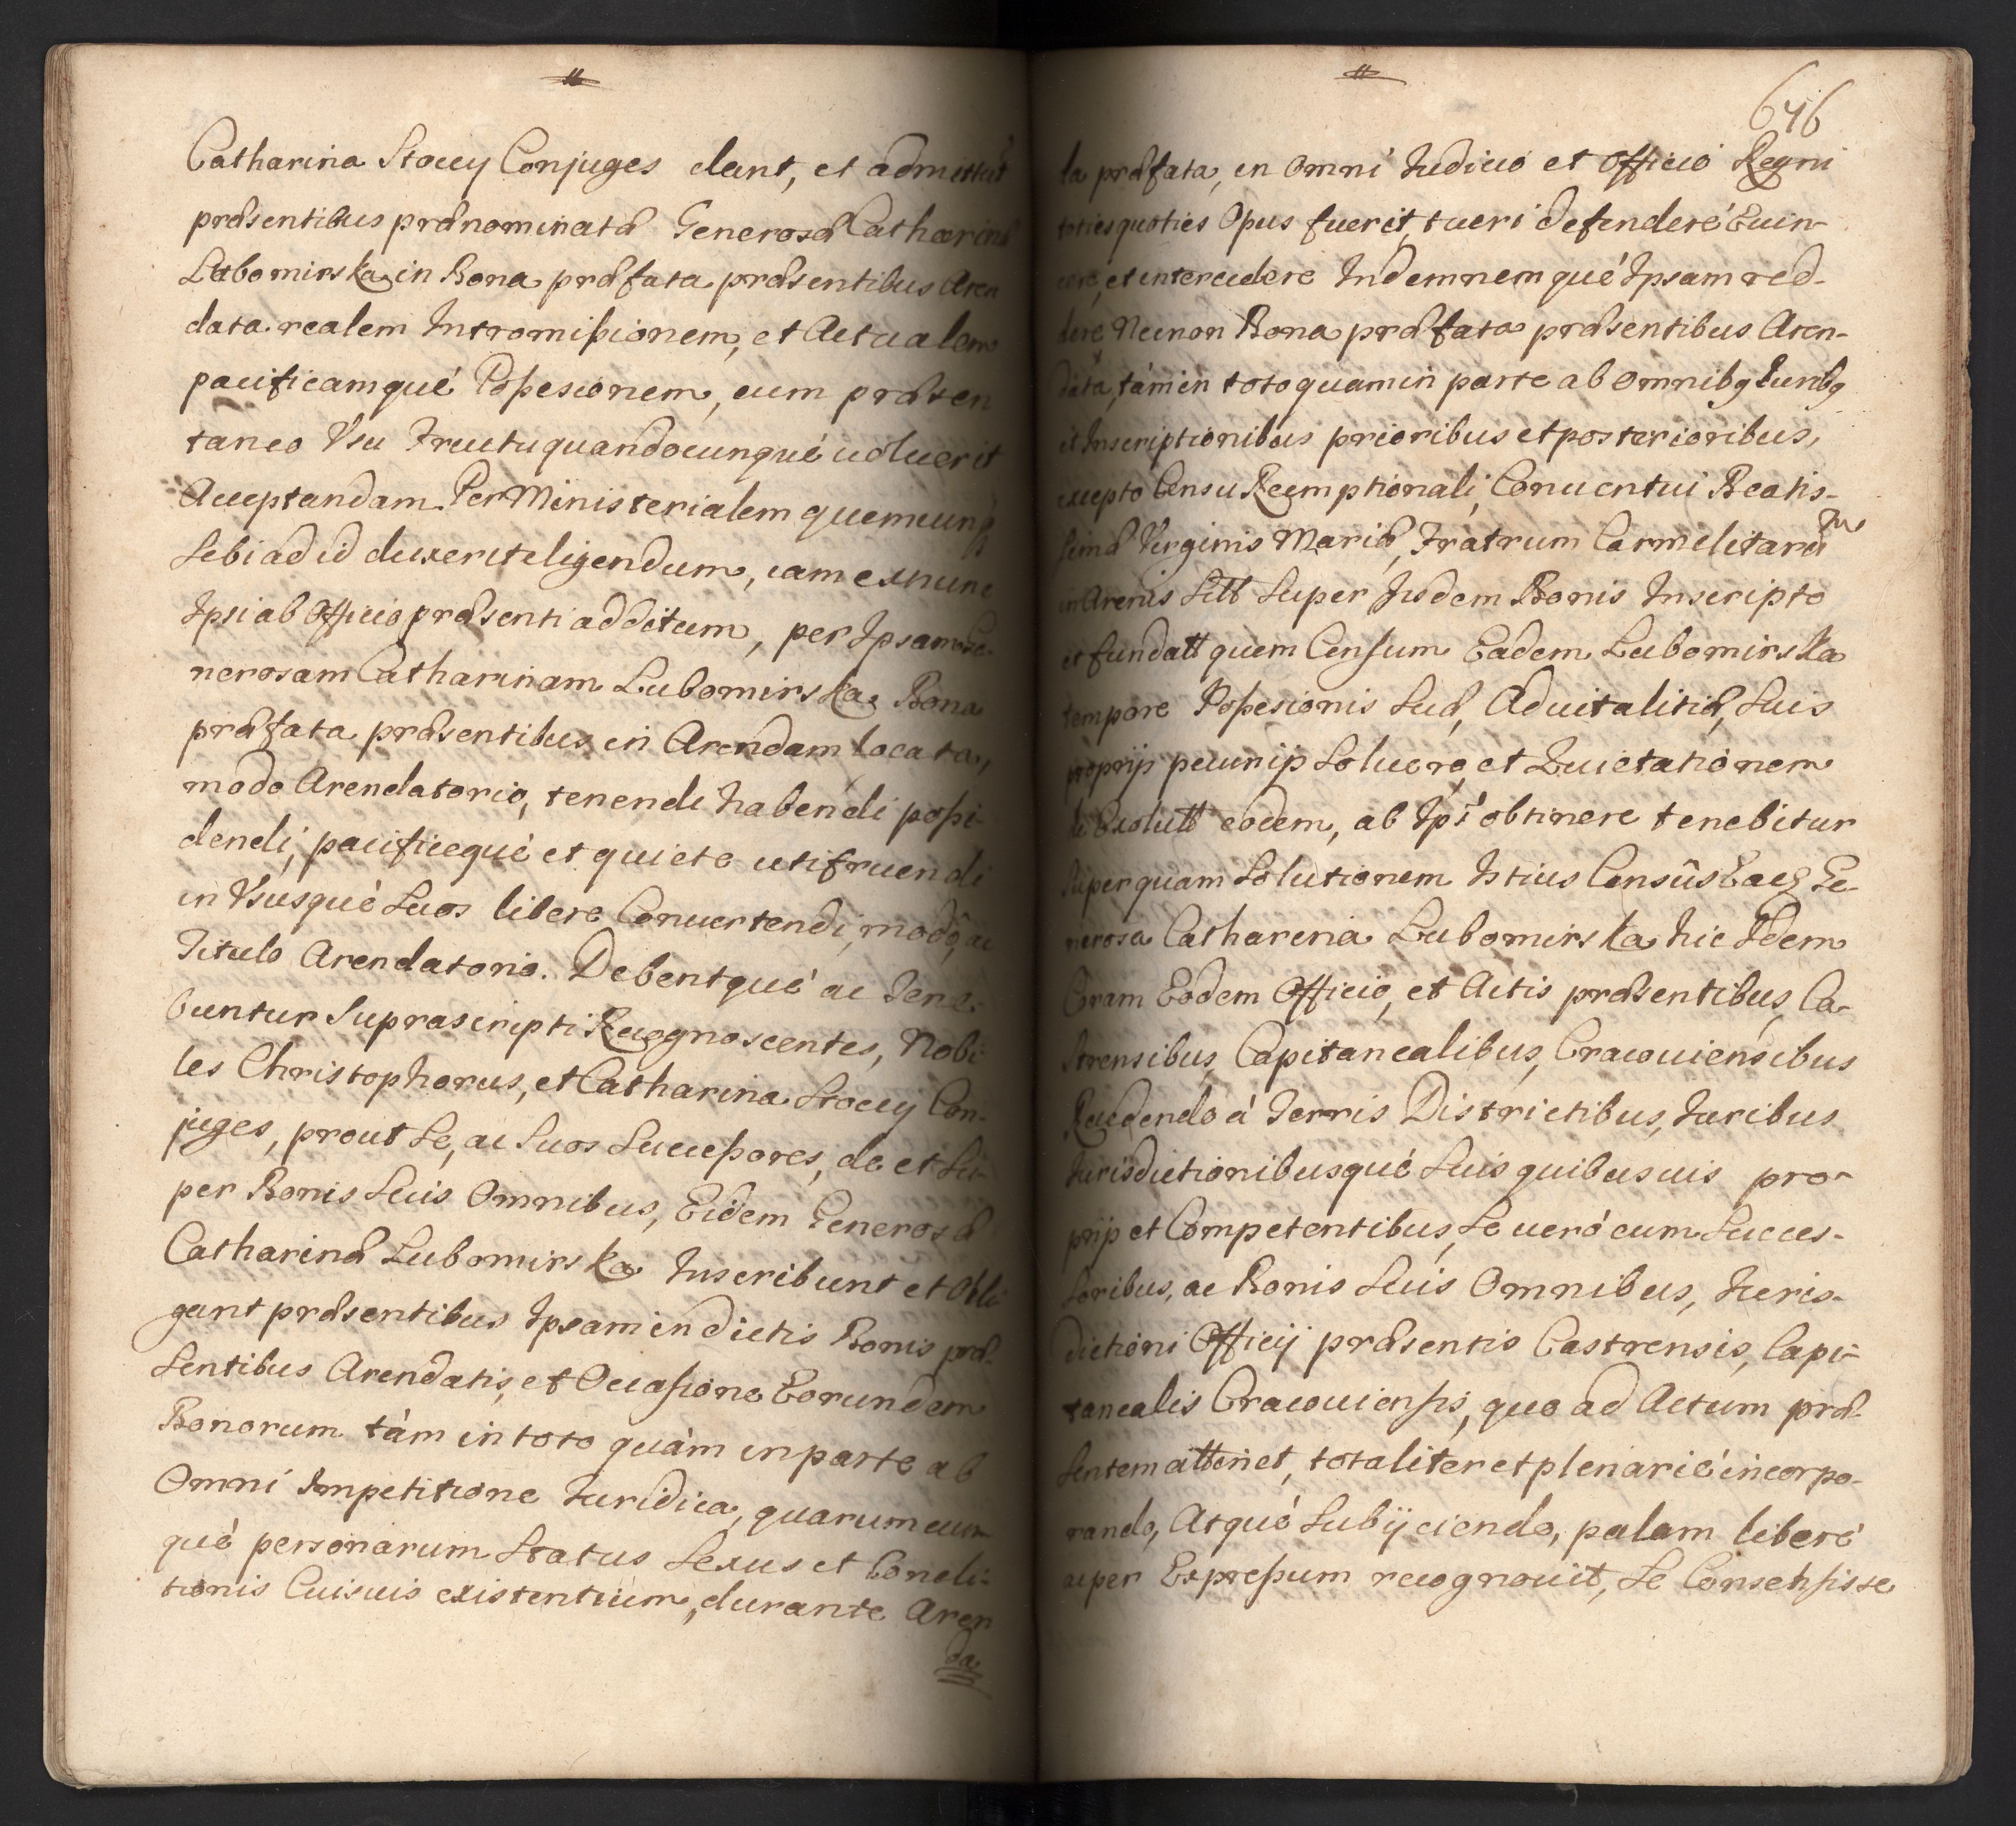 Catharina Stoccy Conjuges dant, et admittut
præsentibus prænominatæ Generosæ Catharinæ
Lubomirska in Bona præfata præsentibus Aren
data realem Intromißionem, et Actualem
pacificamque Poßesionem, cum præsen
taneo Vsu Fructu quandocunque uoluerit
Acceptandam Per Ministerialem quemcunq
Sibi ad id duxerit eligendum, iam ex nunc
Ipsi ab Officio præsenti additum, per Ipsam Ge-
nerosam Catharinam Lubomirska Bona
præfata præsentibus in Arendam locata,
modo Arendatorio, tenendi habendi poßi-
dendi, pacificequè et quiete utifruendi
in Vsusquè Suos libere Conuertendi, modo, ac
Titulo Arendatorio. Debentquè ac Tene-
buntur Suprascripti Recognoscentes, Nobi
les Christophorus, et Catharina Stoccy Con-
juges, prout Se, ac Suos Succeßores, de et Su-
per Bonis Suis Omnibus, Eidem Generosæ
Catharinæ Lubomirska Inscribunt et Obli
gant præsentibus Ipsam in dictis Bonis præ-
Sentibus Arendatis, et Occasione Eorundem
Bonorum tàm in toto quàm in parte ab
Omni Impetitione Iuridica, quarumcun
què personarum Status Sexus et Condi-
tionis Cuisuis existentium, durante Aren
da
646
da præfata, in Omni Iudicio et Officio Regni
totiesquoties Opus fuerit, tueri defendere Euin-
cere, et intercedere Indemnemquè Ipsam red-
dere Necnon Bona præfata præsentibus Aren-
data, tàm in toto quam in parte ab Omnibq Iuribq
et Inscriptionibus prioribus et posterioribus,
excepto Censu Reemptionali, Conuentui Beatis-
simæ Virginis Mariæ, Fratrum Carmelitarum
in Arenis Sitt Super Iisdem Bonis Inscripto
et fundatt quem Censum Eadem Lubomirska
tempore Poßesionis Suæ, Aduitalitiæ, Suis
proprijs pecunijs Soluere, et Quietationem
de Exolutt eodem, ab Ips obtinere tenebitur
Super quam Solutionem Istius Censûs Eaeq Ge-
nerosa Catharina Lubomirska hic Idem
Coram Eodem Officio, et Actis præsentibus, Ca-
strensibus, Capitanealibus, Cracouiensibus
Recedendo à Terris Districtibus, Iuribus
Iurisdictionibusquè Suis quibusuis pro-
prijs et Competentibus, Se uerò cum Succes-
soribus, ac Bonis Suis Omnibus, Iuris-
dictioni Officij præsentis Castrensis, Capi-
tanealis Cracouiensis, quo ad Actum præ-
Sentem attinet, totaliter et plenariè incorpo-
rando, Atquè Subijciendo, palam liberè
ac per Expreßum recognouit, Se Consensisse